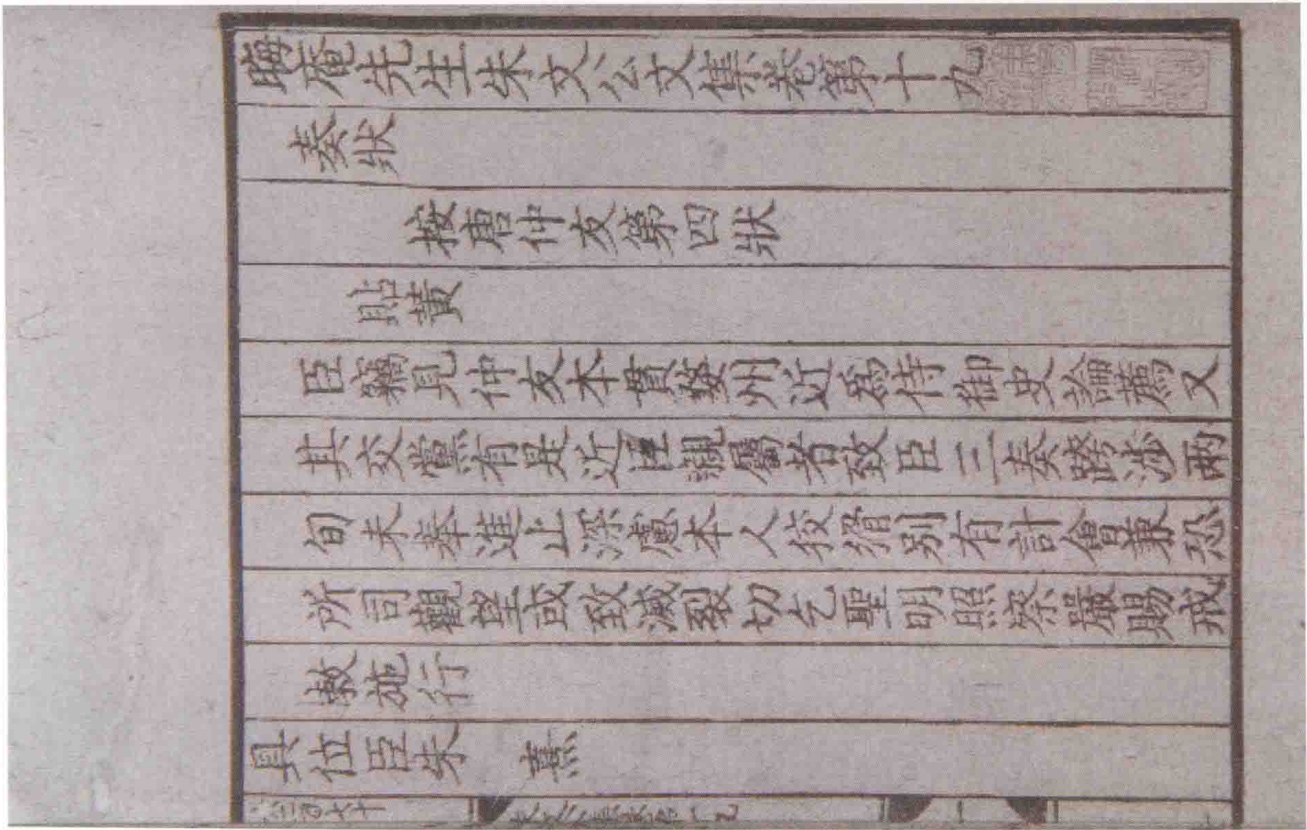 晦庵先生朱文公文集卷第十九
奏狀
按唐仲友第四狀
貼黃
臣竊見仲友本貫婺州近爲侍御史論薦又
其交黨有是近臣親屬者致臣三奏跨涉兩
旬未奉進止深慮本人狡猾別有計會兼恐
所司觀望或致滅裂切乞聖明照察嚴賜戒
敕施行
具位臣朱　熹